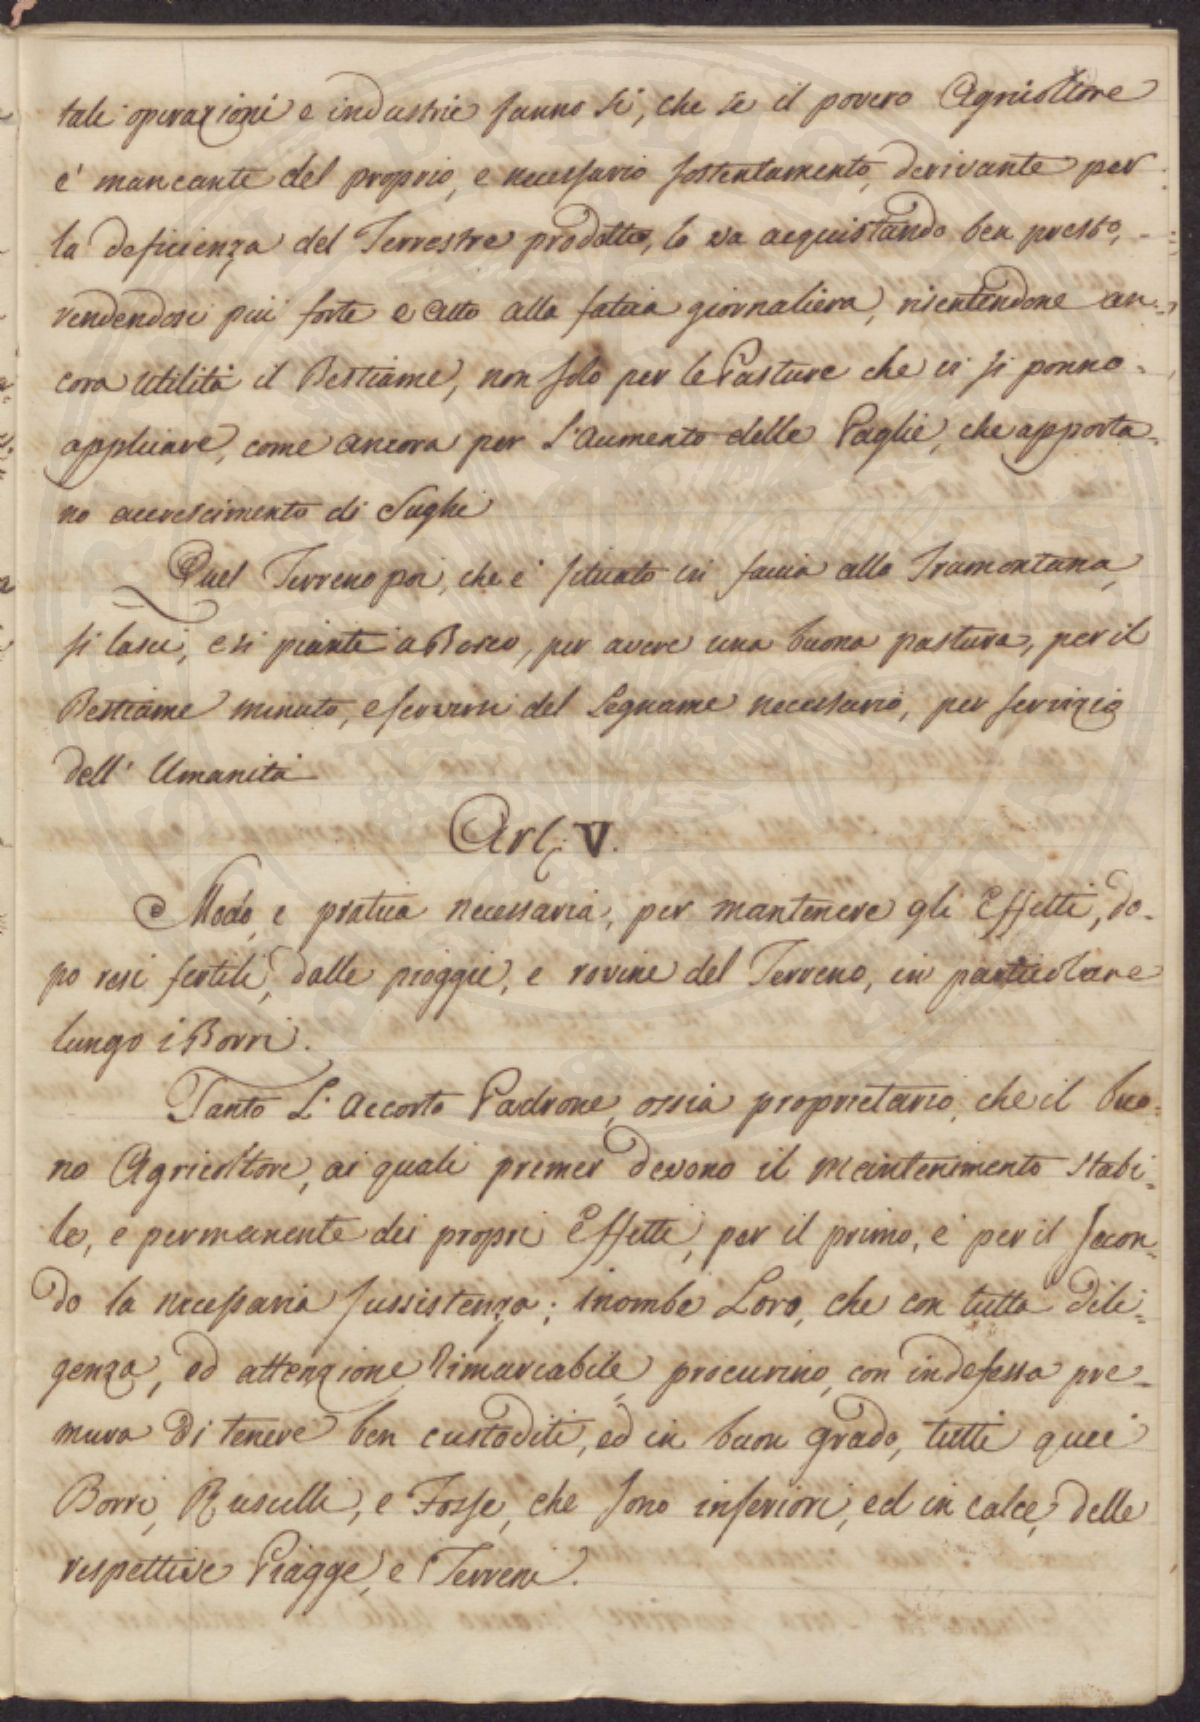 tali operazioni e industrie fanno si, che se il povero Agricoltore
e' mancante del proprio, e necessario sostentamento, derivante per
la deficienza del Terrestre prodotto, lo va acquistando ben presto,
rendendosi più forte e atto alla fatica giornaliera, risentendone an-
cora utilità il Bestiame, non solo per le Pasture che ci si ponno
applicare, come ancora per l'aumento delle Paglie, che apporta-
no accrescimento di Sughi
Quel Terreno poi, che e' situato in faccia alla Tramontana,
si lasci, e si piante a Bosco, per avere una buona pastura, per il
Bestiame minuto, e servirsi del Legname necessario, per servizio
dell' Umanità
Art: V.
Modo, e pratica necessaria, per mantenere gli Effetti, do-
po resi fertili, dalle pioggie, e rovine del Terreno, in particolare
lungo i Borri.
Tanto L'accorto Padrone, ossia proprietario, che il buo-
no Agricoltore, ai quali premer devono il mantenimento stabi-
le, e permanente dei propri Effetti, per il primo, e per il secon-
do la necessaria sussistenza; inombe Loro, che con tutta dili-
genza, ed attenzione rimarcabile procurino, con indefessa pre-
mura di tenere ben custoditi, ed in buon grado, tutti quei
Borri, Ruscelli, e Fosse, che sono inferiori, ed in calce, delle
respettive Piagge, e Terreni.